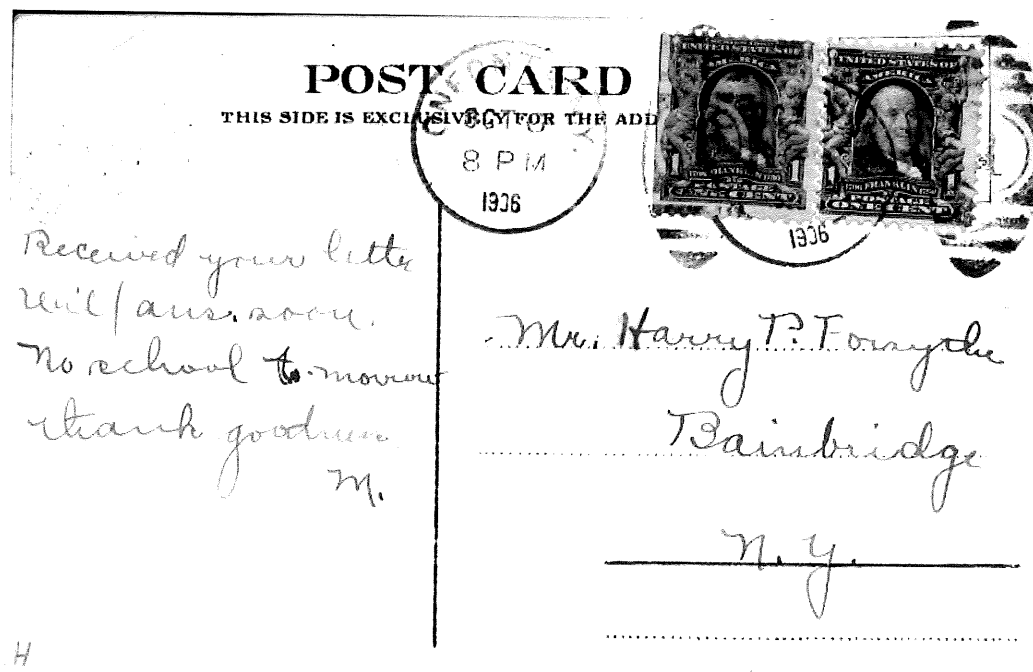 POST CARD
THIS SIDE IS EXCLUSIVELY FOR THE ADD
8 PM
1906
UNITED STATES OF
AMERICA
1 1
FRANKLIN
POSTAGE
ONE CENT
UNITED STATES OF
AMERICA
1 1
FRANKLIN
POSTAGE
ONE CENT
1906
Received your letter
will ans. soon.
No school to-morrow
thank goodness
M.
Mr. Harry P. Forsythe
Bainbridge
N. Y.
H